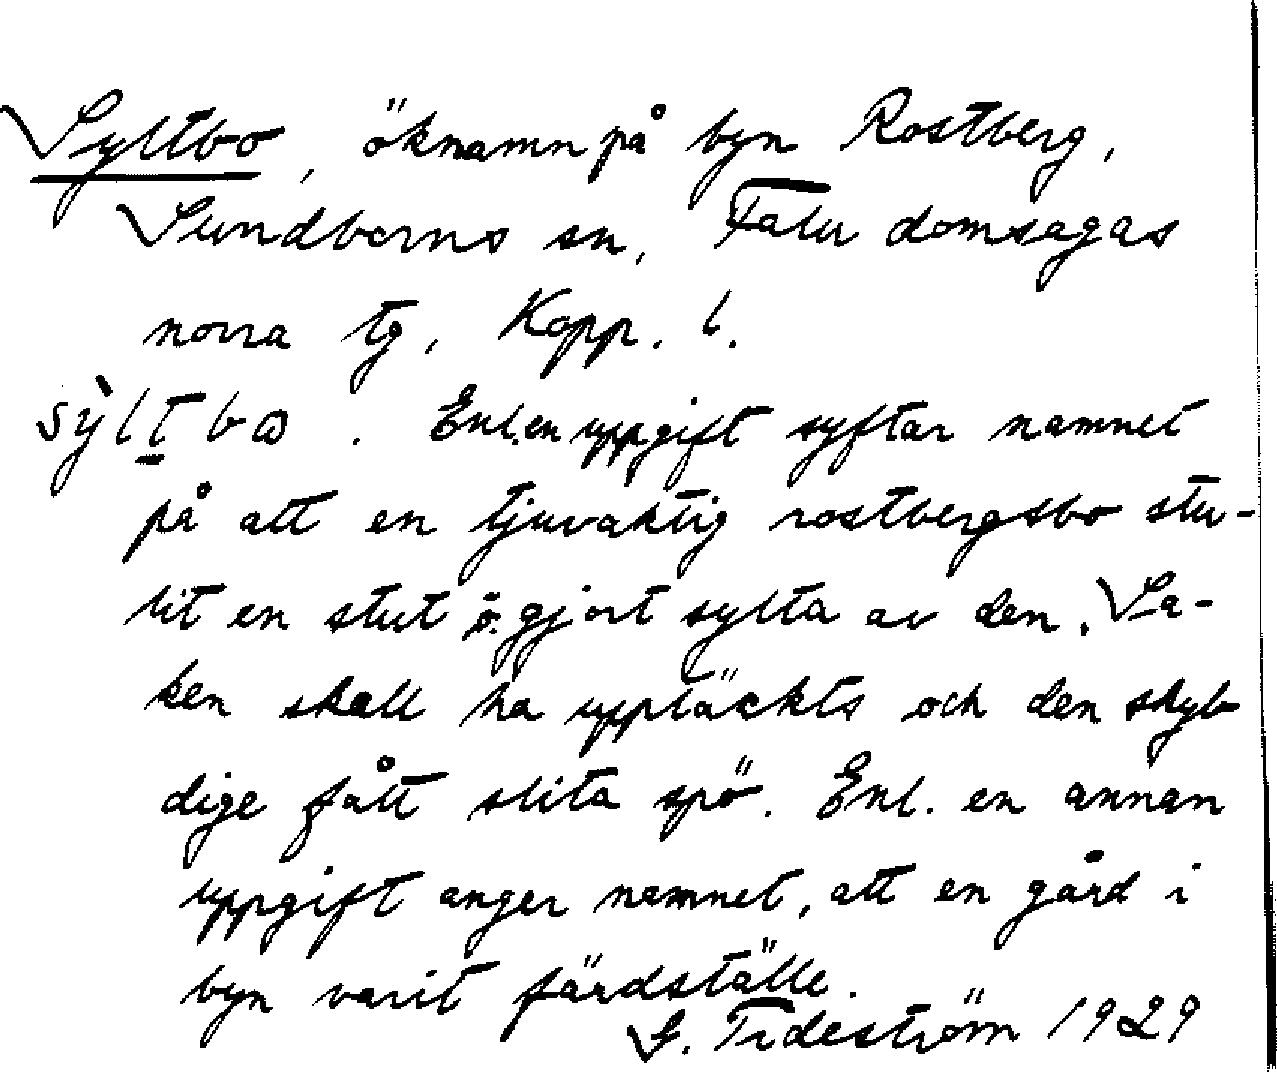 Syltbo, öknamn på byn Rostberg,
Sundborns sn, Falu domsagas
norra tg, Kopp. l.
sỳltbω. Enl. en uppgift syftar namnet
på att en tjuvaktig rostbergsbo stu-
lit en stut o. gjort sylta av den. Sa-
ken skall ha upptäckts och den skyl-
dige fått slita spö. Enl. en annan
uppgift anger namnet, att en gård i
byn varit färdställe.
G. Tideström 1929